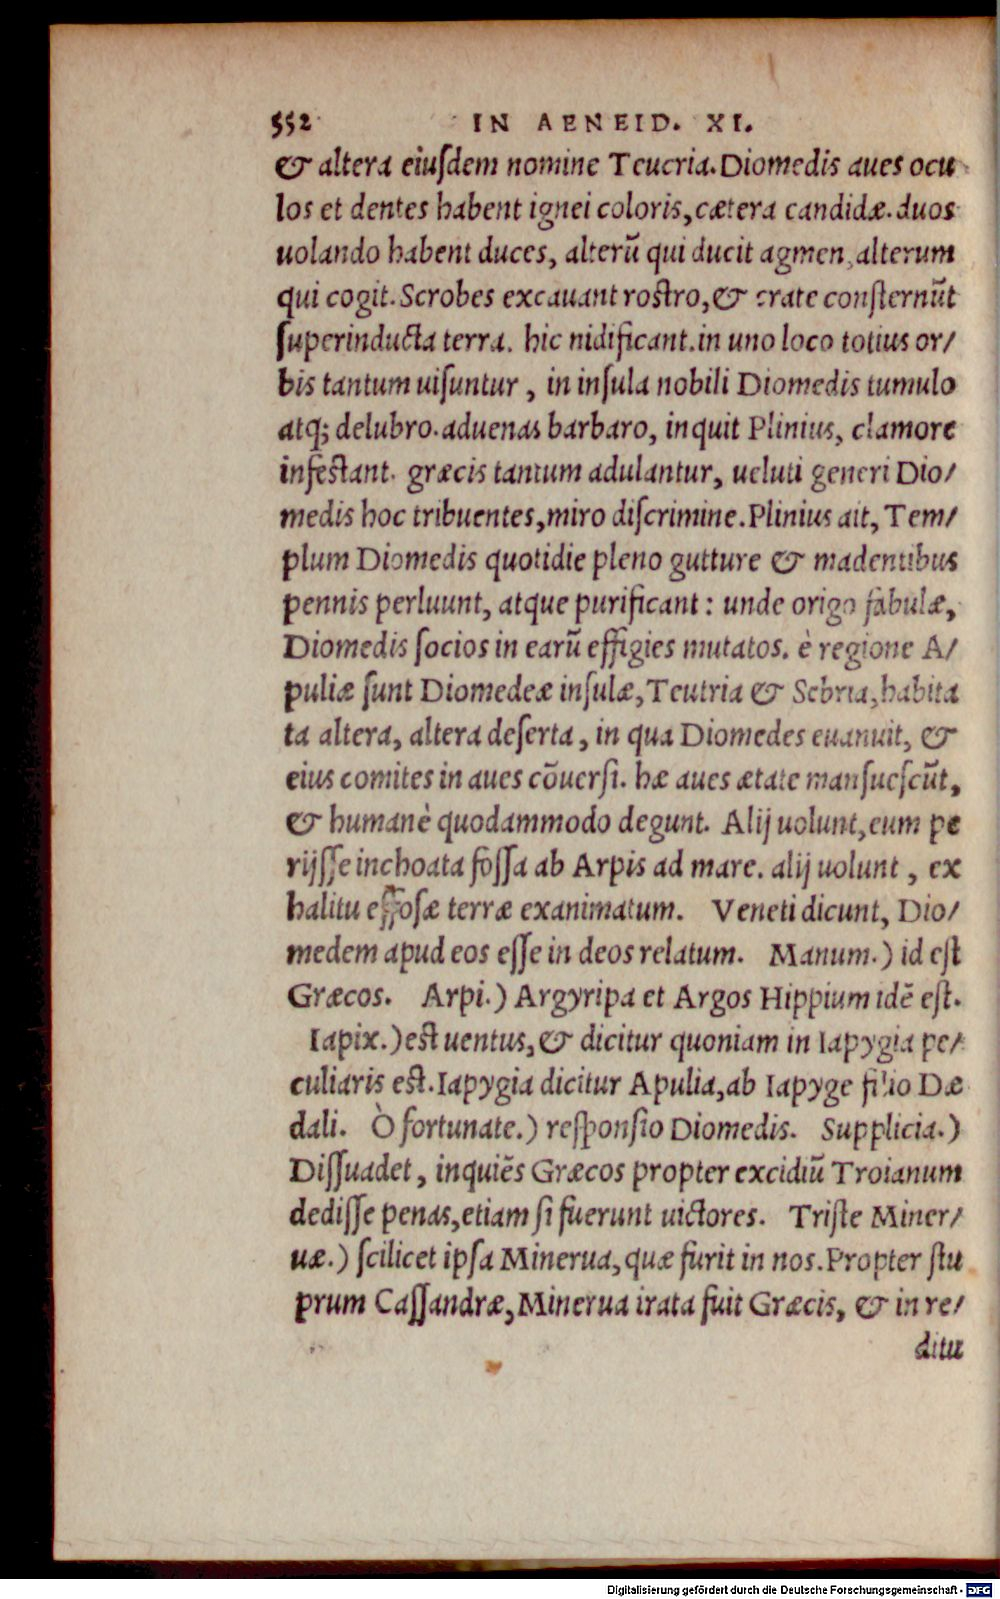 552 IN AENEID. XI.
& altera eiusdem nomine Teucria. Diomedis aues ocu
los et dentes habent ignei coloris, cætera candidæ. duos
uolando habent duces, alterũ qui ducit agmen, alterum
qui cogit. Scrobes excauant rostro, & crate consternũt
superinducta terra. hic nidificant. in uno loco totius or/
bis tantum uisuntur, in insula nobili Diomedis tumulo
atq; delubro. aduenas barbaro, inquit Plinius, clamore
infestant. græcis tantum adulantur, ueluti generi Dio/
medis hoc tribuentes, miro discrimine. Plinius ait, Tem/
plum Diomedis quotidie pleno gutture & madentibus
pennis perluunt, atque purificant: unde origo fabulæ,
Diomedis socios in earũ effigies mutatos. è regione A/
puliæ sunt Diomedeæ insulæ, Teutria & Sebria, habita
ta altera, altera deserta, in qua Diomedes euanuit, &
eius comites in aues cõuersi. hæ aues ætate mansuescũt,
& humanè quodammodo degunt. Alij uolunt, eum pe
rijsse inchoata fossa ab Arpis ad mare. alij uolunt, ex
halitu effosæ terræ exanimatum. Veneti dicunt, Dio/
medem apud eos esse in deos relatum. Manum.) id est
Græcos. Arpi.) Argyripa et Argos Hippium idẽ est.
Iapix.) est uentus, & dicitur quoniam in Iapygia pe/
culiaris est. Iapygia dicitur Apulia, ab Iapyge filio Dæ
dali. Ò fortunate.) responsio Diomedis. Supplicia.)
Dissuadet, inquiẽs Græcos propter excidiũ Troianum
dedisse penas, etiam si fuerunt uictores. Triste Miner/
uæ.) scilicet ipsa Minerua, quæ furit in nos. Propter stu
prum Cassandræ, Minerua irata fuit Græcis, & in re/
ditu
Digitalisierung gefördert durch die Deutsche Forschungsgemeinschaft - DFG